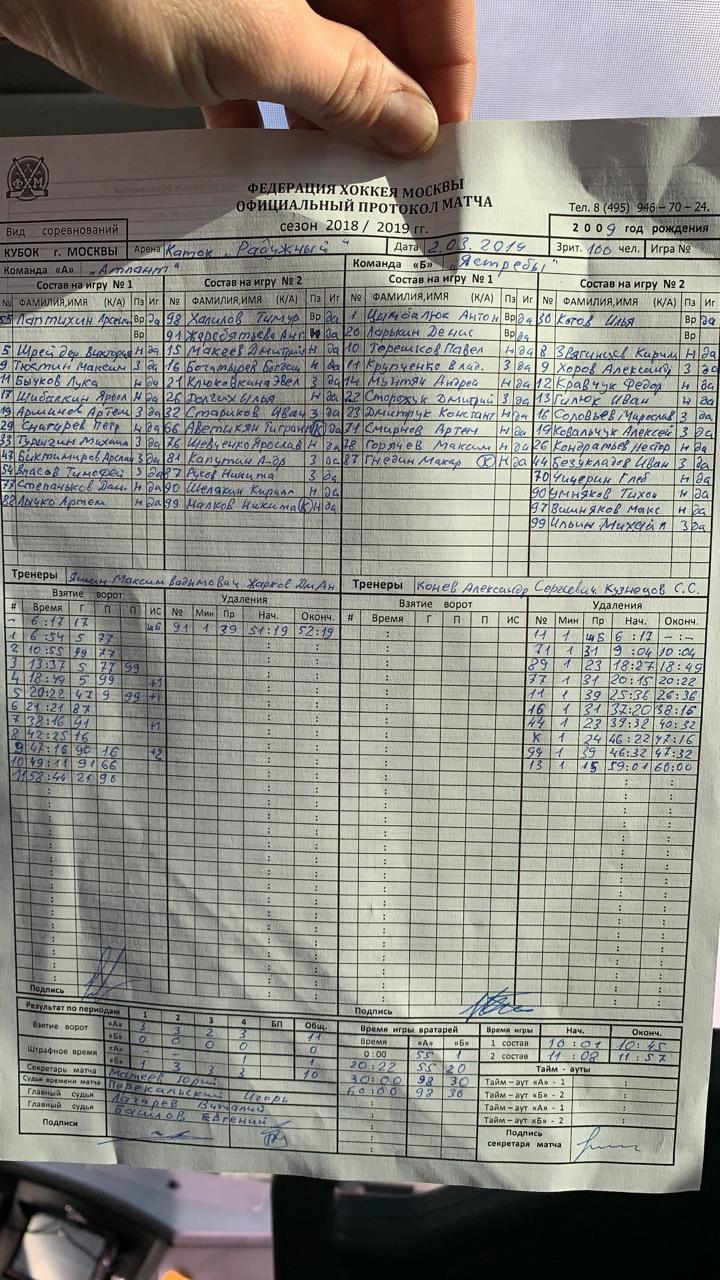 ФХМ
ФЕДЕРАЦИЯ ХОККЕЯ МОСКВЫ
ОФИЦИАЛЬНЫЙ ПРОТОКОЛ МАТЧА
Тел. 8 (495) 946–70–24.
Вид соревнований
сезон 2018 / 2019 гг.
2009 год рождения
КУБОК г. МОСКВЫ Арена Каток „Радужный" Дата 2.03.2019 Зрит. 100 чел. Игра №
Команда «А» „Атлант" Команда «Б» „Ястребы"
Состав на игру № 1 Состав на игру № 2 Состав на игру № 1 Состав на игру № 2
№ ФАМИЛИЯ,ИМЯ (К/А) Пз Иг № ФАМИЛИЯ,ИМЯ (К/А) Пз Иг № ФАМИЛИЯ,ИМЯ (К/А) Пз Иг № ФАМИЛИЯ,ИМЯ (К/А) Пз Иг
55 Лаптихин Арсений Вр да 98 Халилов Тимур Вр да 1 Цымбалюк Антон Вр да 30 Котов Илья Вр да
Вр 91 да 20 Ларькин Денис Вр
5 Шрейдер Виктория Н да 15 Макеев Дмитрий Н да 10 Терешков Павел Н да 8 Звягинцев Кирилл Н да
9 Тюктин Максим З да 16 Богатырев Богдан Н да 11 Крупченко Влад. З да 9 Хоров Александр З да
11 Бычков Лука Н да 21 Клюковкина Эвел З да 14 Мунтян Андрей Н да 12 Кравчук Федор Н да
17 Шибалкин Яросл Н да 26 Долгих Илья Н да 22 Сторожук Дмитрий З да 13 Гилюк Иван Н да
19 Аршинов Артем З да 32 Стариков Иван З да 23 Дмитрук Констант Н да 16 Соловьев Мирослав З да
29 Снигирев Петр Н да 66 Аветикян Тигран (К) да 71 Смирнов Артем Н да 19 Ковальчук Алексей З да
33 Турыгин Михаил З да 76 Шевченко Ярослав Н да 78 Горячев Максим Н да 26 Кондратьев Нестор Н да
47 Биктимиров Арслан З да 81 Капутин З да 87 Гнедин Макар (К) Н да 44 Безукладов Иван З да
54 Власов Тимофей З да 87 Русов Никита З да 70 Чичерин Глеб Н да
77 Степаньков Дан. Н да 90 Шелякин Кирилл Н да 90 Умняков Тихон Н да
82 Лычко Артем Н да 99 Малков Никита (К) Н да 97 Вишняков Макс Н да
99 Ильин Михаил З да
Тренеры Яшин Максим Вадимович Жарков Дм.Ан. Тренеры Конев Александр Сергеевич Кузнецов С.С.
Взятие ворот Удаления Взятие ворот Удаления
# Время Г П П ИС № Мин Пр Нач. Оконч. # Время Г П П ИС № Мин Пр Нач. Оконч.
– 6:17 17 шБ 91 1 39 51:19 52:19 11 1 шБ 6:17 –:–
1 6:54 5 77 71 1 31 9:04 10:04
2 10:55 99 77 89 1 23 18:27 18:49
3 13:37 5 77 99 77 1 31 20:15 20:22
4 18:49 5 99 +1 11 1 39 25:36 26:36
5 20:22 47 9 99 +1 16 1 31 37:20 38:16
6 21:21 87 44 1 23 39:32 40:32
7 38:16 91 +1 К 1 24 46:22 47:16
8 42:25 16 99 1 39 46:32 47:32
9 47:16 90 16 +2 13 1 15 59:01 60:00
10 49:11 91 66
11 52:44 21 90
Подпись Подпись
Результат по периодам 1 2 3 4 БП Общ.
Взятие ворот «А» 3 3 2 3 11
«Б» 0 0 0 0 0
Штрафное время «А» – – – 1 1
«Б» 1 3 3 3 10
Время игры вратарей
Время «А» «Б»
0:00 55 1
20:22 55 20
30:00 98 30
60:00 98 30
Время игры Нач. Оконч.
1 состав 10:01 10:45
2 состав 11:08 11:57
Тайм – ауты
Тайм–аут «А» - 1
Тайм–аут «Б» - 2
Тайм–аут «А» - 1
Тайм–аут «Б» - 2
Секретарь матча Матеев Юрий
Судья времени матча Игорь
Главный судья Лазарев Виталий
Главный судья Башлов Евгений
Подписи
Подпись
секретаря матча